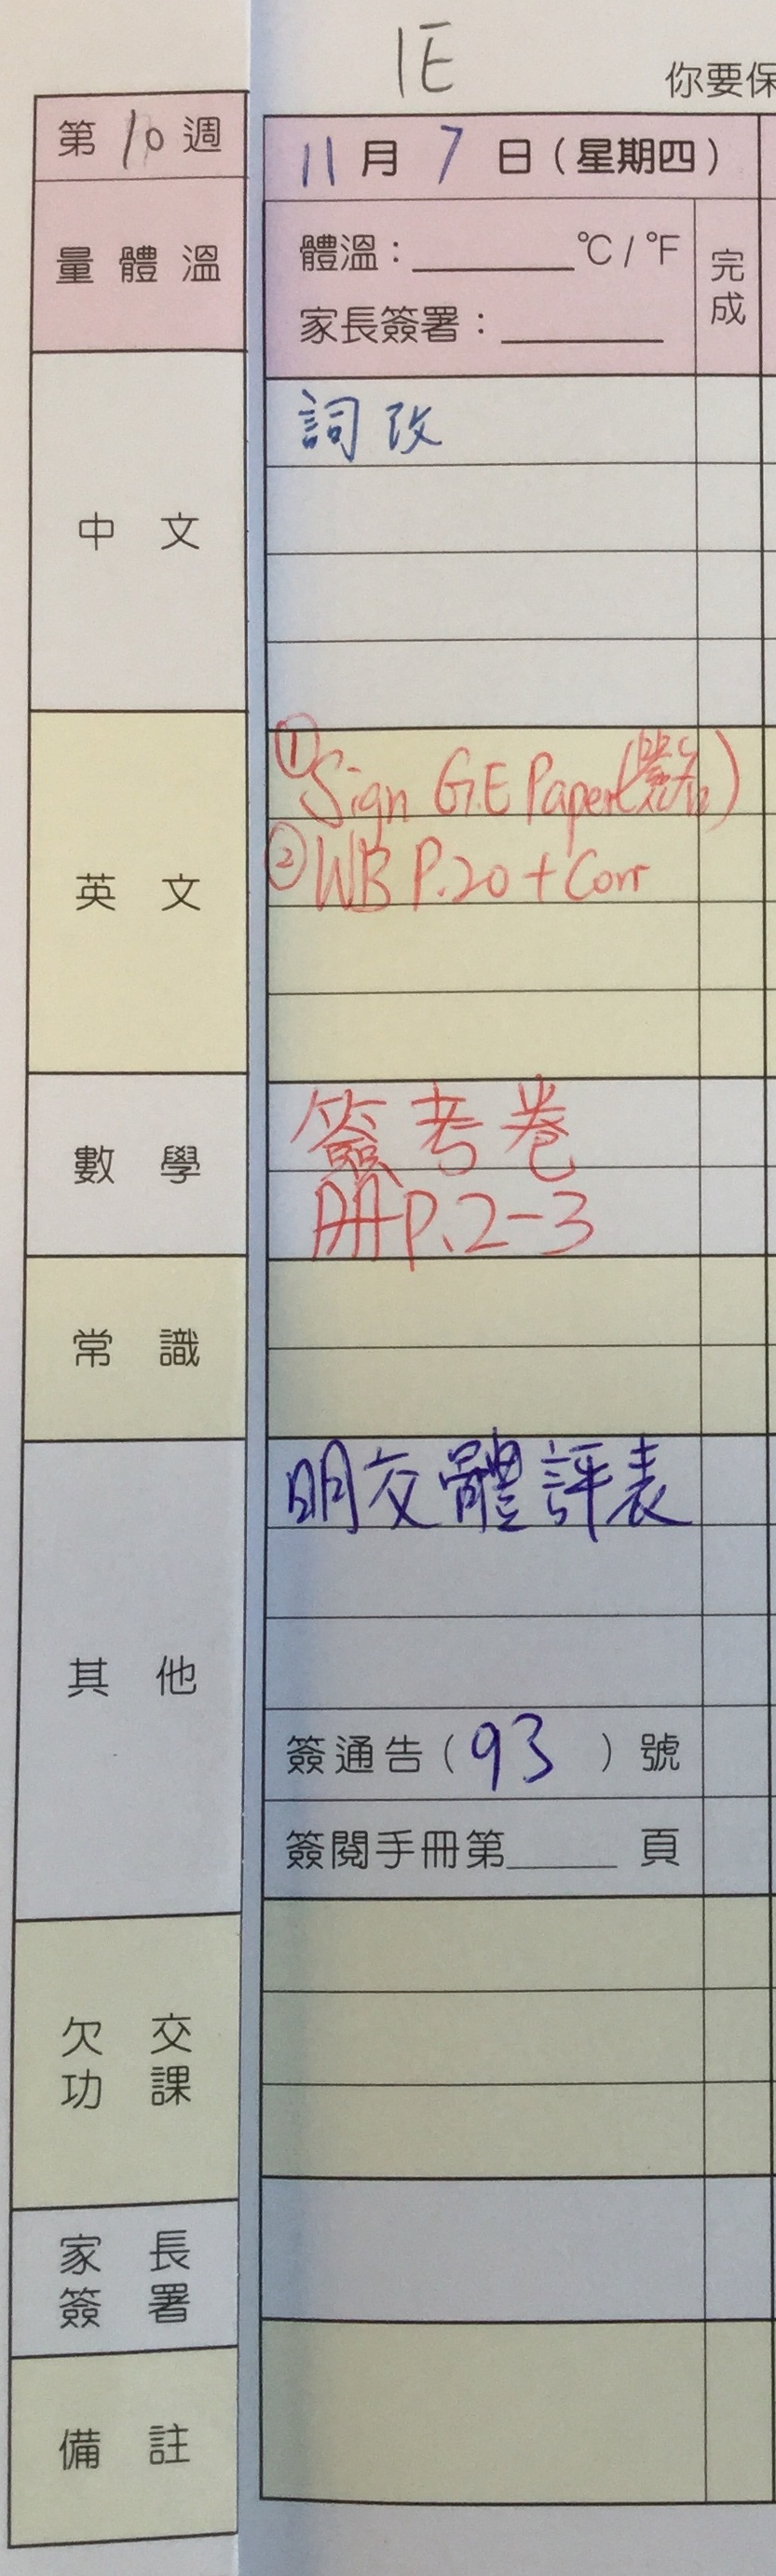 1E
你要保
第10週
11月7日(星期四)
量體溫
體溫：______°C / °F
家長簽署：______
完成
中文
詞改
英文
① Sign G.E Paper(
② WB P.20 + Corr
數學
簽考卷
冊P.2-3
常識
其他
明交體評表
簽通告(93)號
簽閱手冊第____頁
欠交功課
家長簽署
備註